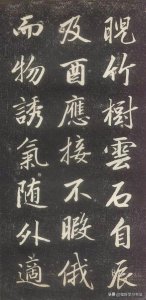 睨竹樹雲石自辰
及酉應接不暇俄
而物誘氣随外適